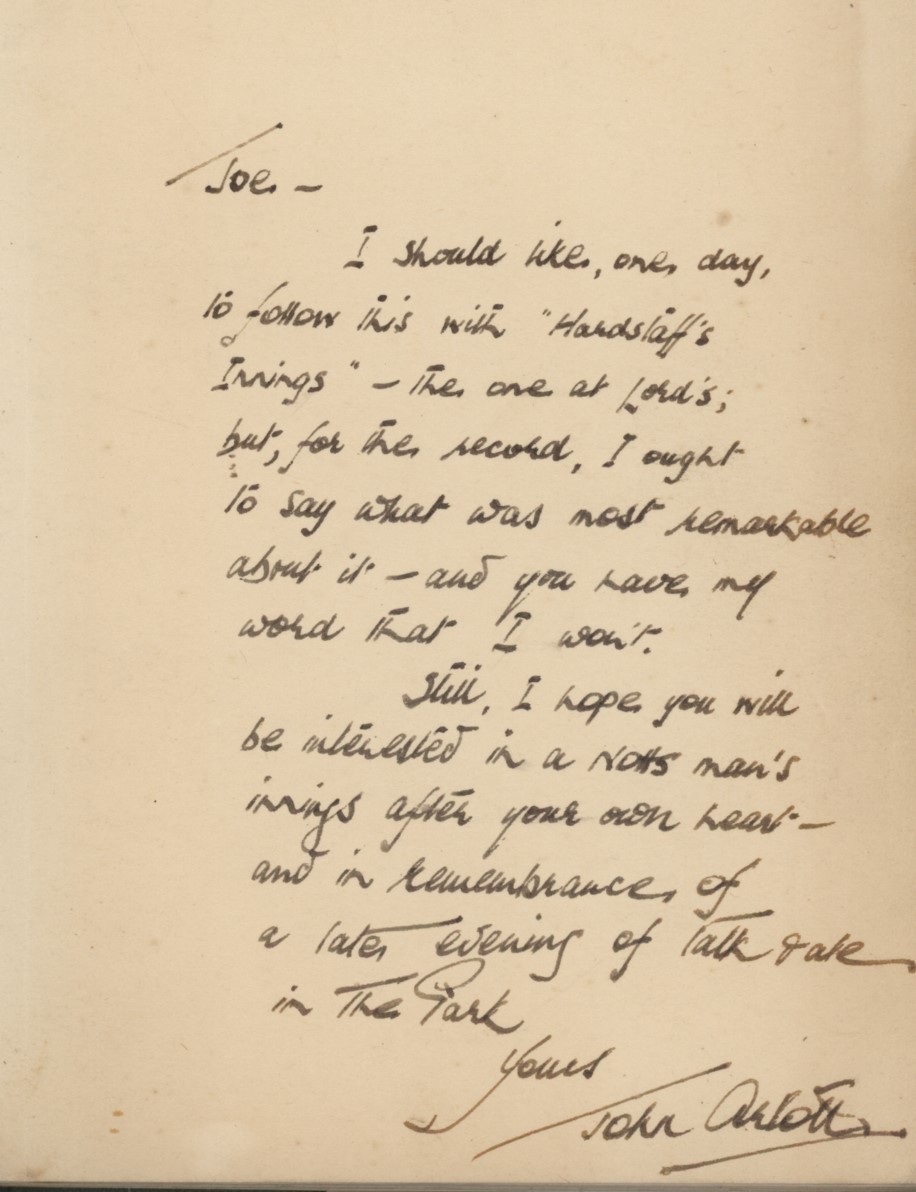 Joe —
I should like, one day,
to follow this with "Hardstaff's
Innings" — the one at Lord's;
but, for the record, I ought
to say what was most remarkable
about it — and you have my
word that I won't.
Still, I hope you will
be interested in a Notts man's
innings after your own heart —
and in remembrance of
a late evening of talk & ale
in The Park
Yours
John Arlott